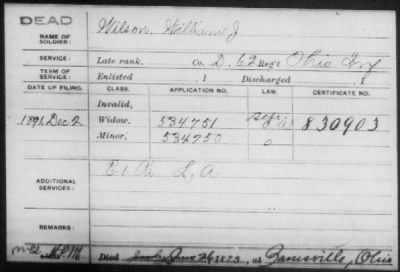 DEAD
NAME OF SOLDIER: Wilson, William J
SERVICE: Late rank, Co. D, 62 Reg't Ohio Inf
TERM OF SERVICE: Enlisted , 1 Discharged , 1
DATE OF FILING. CLASS. APPLICATION NO. LAW. CERTIFICATE NO.
Invalid,
1891 Dec 2 Widow, 534751 830903
Minor, 534750
ADDITIONAL SERVICES: L. A
REMARKS:
Died 1873, at Zanesville, Ohio